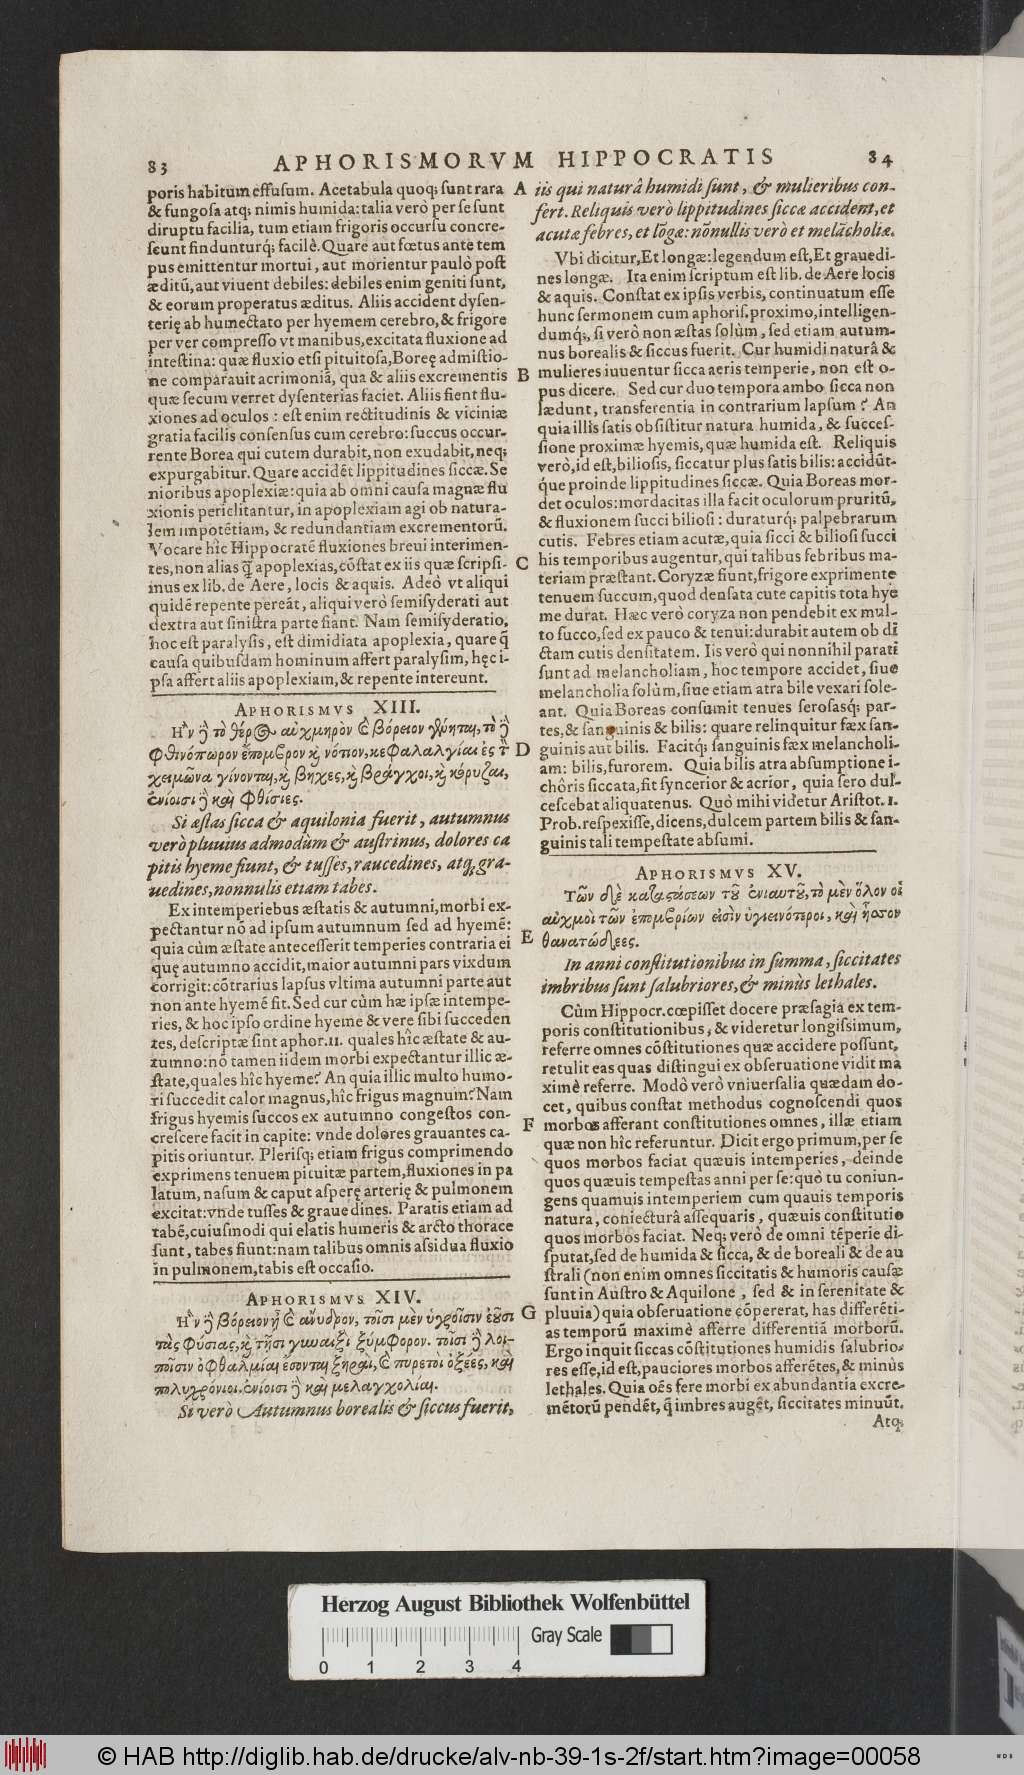 83 APHORISMORVM HIPPOCRATIS 84
poris habitum effusum. Acetabula quoq; sunt rara
& fungosa atq; nimis humida: talia verò per se sunt
diruptu facilia, tum etiam frigoris occursu concre-
scunt findunturq; facilè. Quare aut fœtus ante tem
pus emittentur mortui, aut morientur paulò post
æditũ, aut viuent debiles: debiles enim geniti sunt,
& eorum properatus æditus. Aliis accident dysen-
terię ab humectato per hyemem cerebro, & frigore
per ver compresso vt manibus, excitata fluxione ad
intestina: quæ fluxio etsi pituitosa, Boreę admistio-
ne comparauit acrimoniã, qua & aliis excrementis
quæ secum verret dysenterias faciet. Aliis fient flu-
xiones ad oculos : est enim rectitudinis & viciniæ
gratia facilis consensus cum cerebro: succus occur-
rente Borea qui cutem durabit, non exudabit, neq;
expurgabitur. Quare accidẽt lippitudines siccæ. Se
nioribus apoplexiæ: quia ab omni causa magnæ flu
xionis periclitantur, in apoplexiam agi ob natura-
lem impotẽtiam, & redundantiam excrementorũ.
Vocare hîc Hippocratẽ fluxiones breui interimen-
tes, non alias q̃ apoplexias, cõstat ex iis quæ scripsi-
mus ex lib. de Aere, locis & aquis. Adeò vt aliqui
quidẽ repente pereãt, aliqui verò semisyderati aut
dextra aut sinistra parte fiant. Nam semisyderatio,
hoc est paralysis, est dimidiata apoplexia, quare q̃
causa quibusdam hominum affert paralysim, hęc i-
psa affert aliis apoplexiam, & repente intereunt.
APHORISMVS XIII.
Ἢν δὲ τὸ θέρος αὐχμηρὸν καὶ βόρειον γένηται, τὸ δὲ
φθινόπωρον ἔπομβρον καὶ νότιον, κεφαλαλγίαι ἐς τὸν
χειμῶνα γίνονται, καὶ βῆχες, καὶ βράγχοι, καὶ κόρυζαι,
ἐνίοισι δὲ καὶ φθίσιες.
Si æstas sicca & aquilonia fuerit, autumnus
verò pluuius admodùm & austrinus, dolores ca
pitis hyeme fiunt, & tusses, raucedines, atq; gra-
uedines, nonnulis etiam tabes.
Ex intemperiebus æstatis & autumni, morbi ex-
pectantur nõ ad ipsum autumnum sed ad hyemẽ:
quia cùm æstate antecesserit temperies contraria ei
quę autumno accidit, maior autumni pars vixdum
corrigit: cõtrarius lapsus vltima autumni parte aut
non ante hyemẽ fit. Sed cur cùm hæ ipsæ intempe-
ries, & hoc ipso ordine hyeme & vere sibi succeden
tes, descriptæ sint aphor. 11. quales hîc æstate & au-
tumno: nõ tamen iidem morbi expectantur illic æ-
state, quales hîc hyeme? An quia illic multo humo-
ri succedit calor magnus, hîc frigus magnum? Nam
frigus hyemis succos ex autumno congestos con-
crescere facit in capite: vnde dolores grauantes ca-
pitis oriuntur. Plerisq; etiam frigus comprimendo
exprimens tenuem pituitæ partem, fluxiones in pa
latum, nasum & caput asperę arterię & pulmonem
excitat: vnde tusses & grauedines. Paratis etiam ad
tabẽ, cuiusmodi qui elatis humeris & arcto thorace
sunt, tabes fiunt: nam talibus omnis assidua fluxio
in pulmonem, tabis est occasio.
APHORISMVS XIV.
Ἢν δὲ βόρειον ᾖ καὶ ἄνυδρον, τοῖσι μὲν ὑγροῖσιν ἐοῦσι
τὰς φύσιας, καὶ τῇσι γυναιξὶ ξύμφορον. τοῖσι δὲ λοι-
ποῖσιν ὀφθαλμίαι ἔσονται ξηραὶ, καὶ πυρετοὶ ὀξέες, καὶ
πολυχρόνιοι. ἐνίοισι δὲ καὶ μελαγχολίαι.
Si verò Autumnus borealis & siccus fuerit,
A iis qui naturâ humidi sunt, & mulieribus con-
fert. Reliquis verò lippitudines siccæ accident, et
acutæ febres, et lõgæ: nõnullis verò et melãcholiæ.
Vbi dicitur, Et longæ: legendum est, Et grauedi-
nes longæ. Ita enim scriptum est lib. de Aere locis
& aquis. Constat ex ipsis verbis, continuatum esse
hunc sermonem cum aphoris. proximo, intelligen-
dumq;, si verò non æstas solùm, sed etiam autum-
nus borealis & siccus fuerit. Cur humidi naturâ &
B mulieres iuuentur sicca aeris temperie, non est o-
pus dicere. Sed cur duo tempora ambo sicca non
lædunt, transferentia in contrarium lapsum? An
quia illis satis obsistitur natura humida, & succes-
sione proximæ hyemis, quæ humida est. Reliquis
verò, id est, biliosis, siccatur plus satis bilis: accidũt-
que proinde lippitudines siccæ. Quia Boreas mor-
det oculos: mordacitas illa facit oculorum pruritũ,
& fluxionem succi biliosi : duraturq; palpebrarum
cutis. Febres etiam acutæ, quia sicci & biliosi succi
C his temporibus augentur, qui talibus febribus ma-
teriam præstant. Coryzæ fiunt, frigore exprimente
tenuem succum, quod densata cute capitis tota hye
me durat. Hæc verò coryza non pendebit ex mul-
to succo, sed ex pauco & tenui: durabit autem ob di
ctam cutis densitatem. Iis verò qui nonnihil parati
sunt ad melancholiam, hoc tempore accidet, siue
melancholia solùm, siue etiam atra bile vexari sole-
ant. Quia Boreas consumit tenues serosasq; par-
tes, & sanguinis & bilis: quare relinquitur fæx san-
D guinis aut bilis. Facitq; sanguinis fæx melancholi-
am: bilis, furorem. Quia bilis atra absumptione i-
chôris siccata, fit syncerior & acrior, quia sero dul-
cescebat aliquatenus. Quò mihi videtur Aristot. 1.
Prob. respexisse, dicens, dulcem partem bilis & san-
guinis tali tempestate absumi.
APHORISMVS XV.
Τῶν δὲ καταστάσεων τοῦ ἐνιαυτοῦ, τὸ μὲν ὅλον οἱ
αὐχμοὶ τῶν ἐπομβρίων εἰσὶν ὑγιεινότεροι, καὶ ἧσσον
E θανατώδεες.
In anni constitutionibus in summa, siccitates
imbribus sunt salubriores, & minùs lethales.
Cùm Hippocr. cœpisset docere præsagia ex tem-
poris constitutionibus, & videretur longissimum,
referre omnes cõstitutiones quæ accidere possunt,
retulit eas quas distingui ex obseruatione vidit ma
ximè referre. Modò verò vniuersalia quædam do-
cet, quibus constat methodus cognoscendi quos
F morbos afferant constitutiones omnes, illæ etiam
quæ non hîc referuntur. Dicit ergo primum, per se
quos morbos faciat quæuis intemperies, deinde
quos quæuis tempestas anni per se: quò tu coniun-
gens quamuis intemperiem cum quauis temporis
natura, coniecturâ assequaris, quæuis constitutio
quos morbos faciat. Neq; verò de omni tẽperie di-
sputat, sed de humida & sicca, & de boreali & de au
strali (non enim omnes siccitatis & humoris causæ
sunt in Austro & Aquilone, sed & in serenitate &
G pluuia) quia obseruatione cõpererat, has differẽti-
as temporũ maximè afferre differentiã morborũ.
Ergo inquit siccas cõstitutiones humidis salubrio-
res esse, id est, pauciores morbos afferẽtes, & minùs
lethales. Quia oẽs fere morbi ex abundantia excre-
mẽtorũ pendẽt, q̃ imbres augẽt, siccitates minuũt.
Atq;
Herzog August Bibliothek Wolfenbüttel
Gray Scale
0 1 2 3 4
© HAB http://diglib.hab.de/drucke/alv-nb-39-1s-2f/start.htm?image=00058